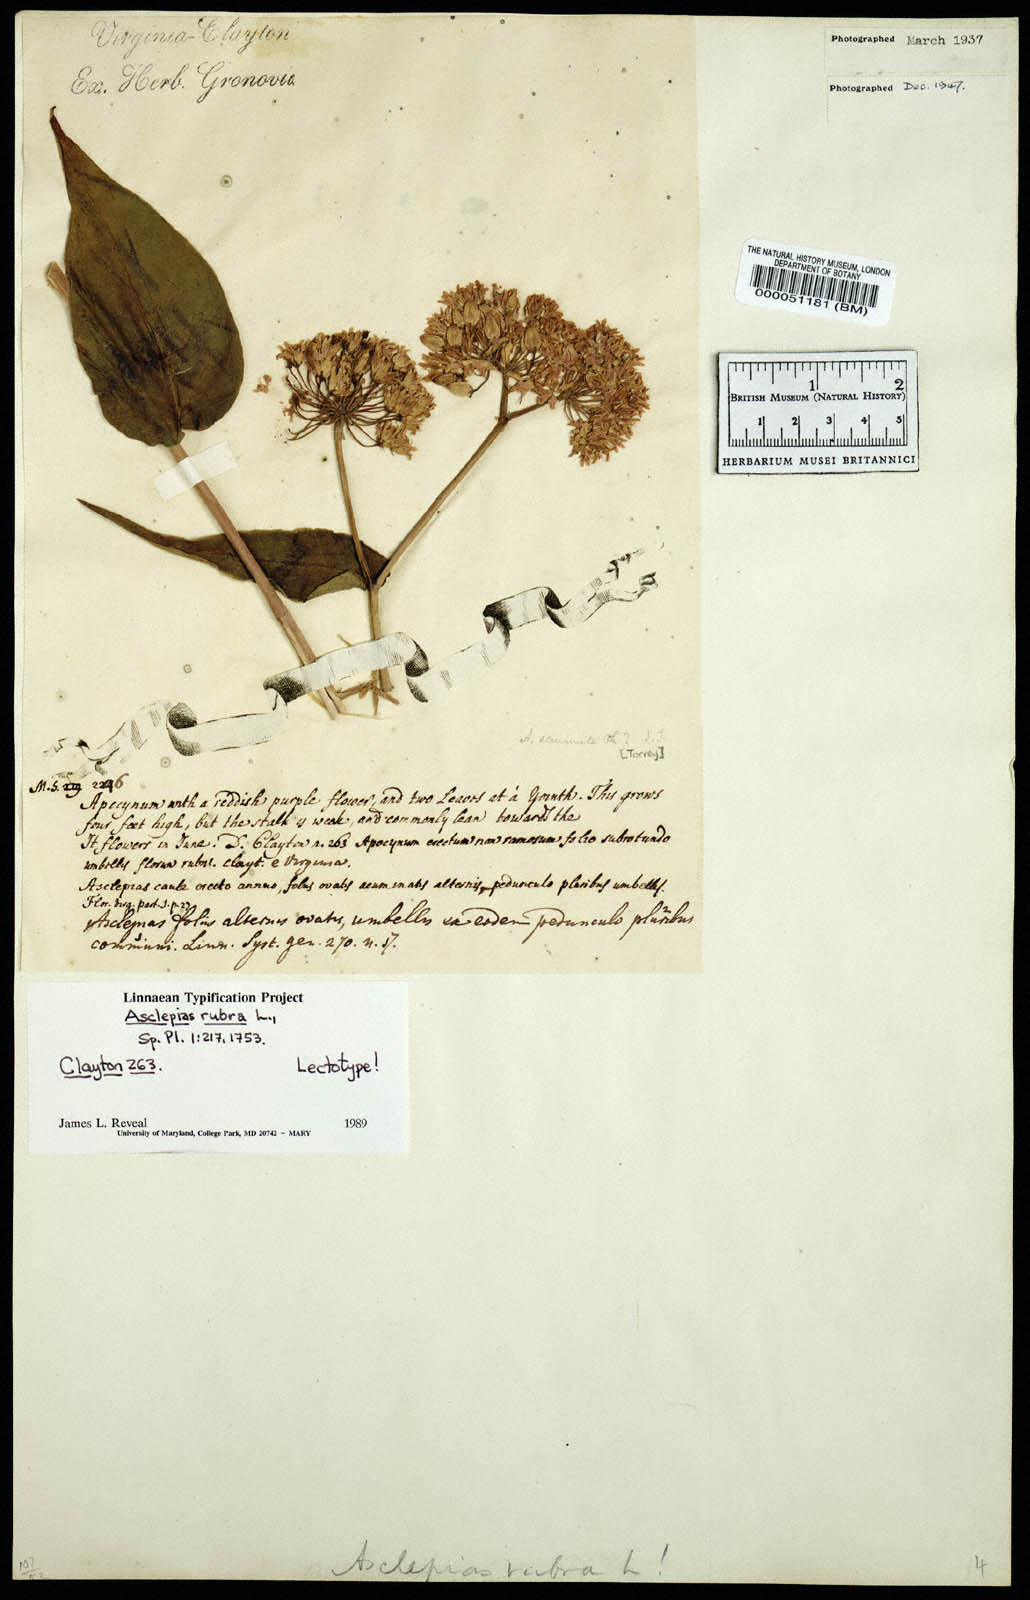 Virginia-Clayton
Ex. Herb. Gronovii
Photographed March 1937
Photographed Dec. 1947.
THE NATURAL HISTORY MUSEUM, LONDON
DEPARTMENT OF BOTANY
000051181 (BM)
1 2
BRITISH MUSEUM (NATURAL HISTORY)
1 2 3 4 5
HERBARIUM MUSEI BRITANNICI
[Torrey]
M.S.
Apocynum with a reddish purple flower, and two Leaves at a Yointh. This grows
four feet high, but the stalk is weak, and commonly lean towards the
It flowers in June. D. Clayton n. 263 Apocynum erectum non ramosum folio subrotundo
umbellis florum rubris. clayt. e Virginia.
Asclepias caule erecto annuo, foliis ovatis acuminatis alternis, pedunculo pluribus umbellis.
Flor. virg. part. 1. p. 27
Asclepias foliis alternis ovatis, umbellis ex eodem pedunculo pluribus
communi. Linn. Syst. gen. 270. n. 17.
Linnaean Typification Project
Asclepias rubra L.,
Sp. Pl. 1:217, 1753.
Clayton 263. Lectotype!
James L. Reveal 1989
University of Maryland, College Park, MD 20742 – MARY
Asclepias rubra L!
4